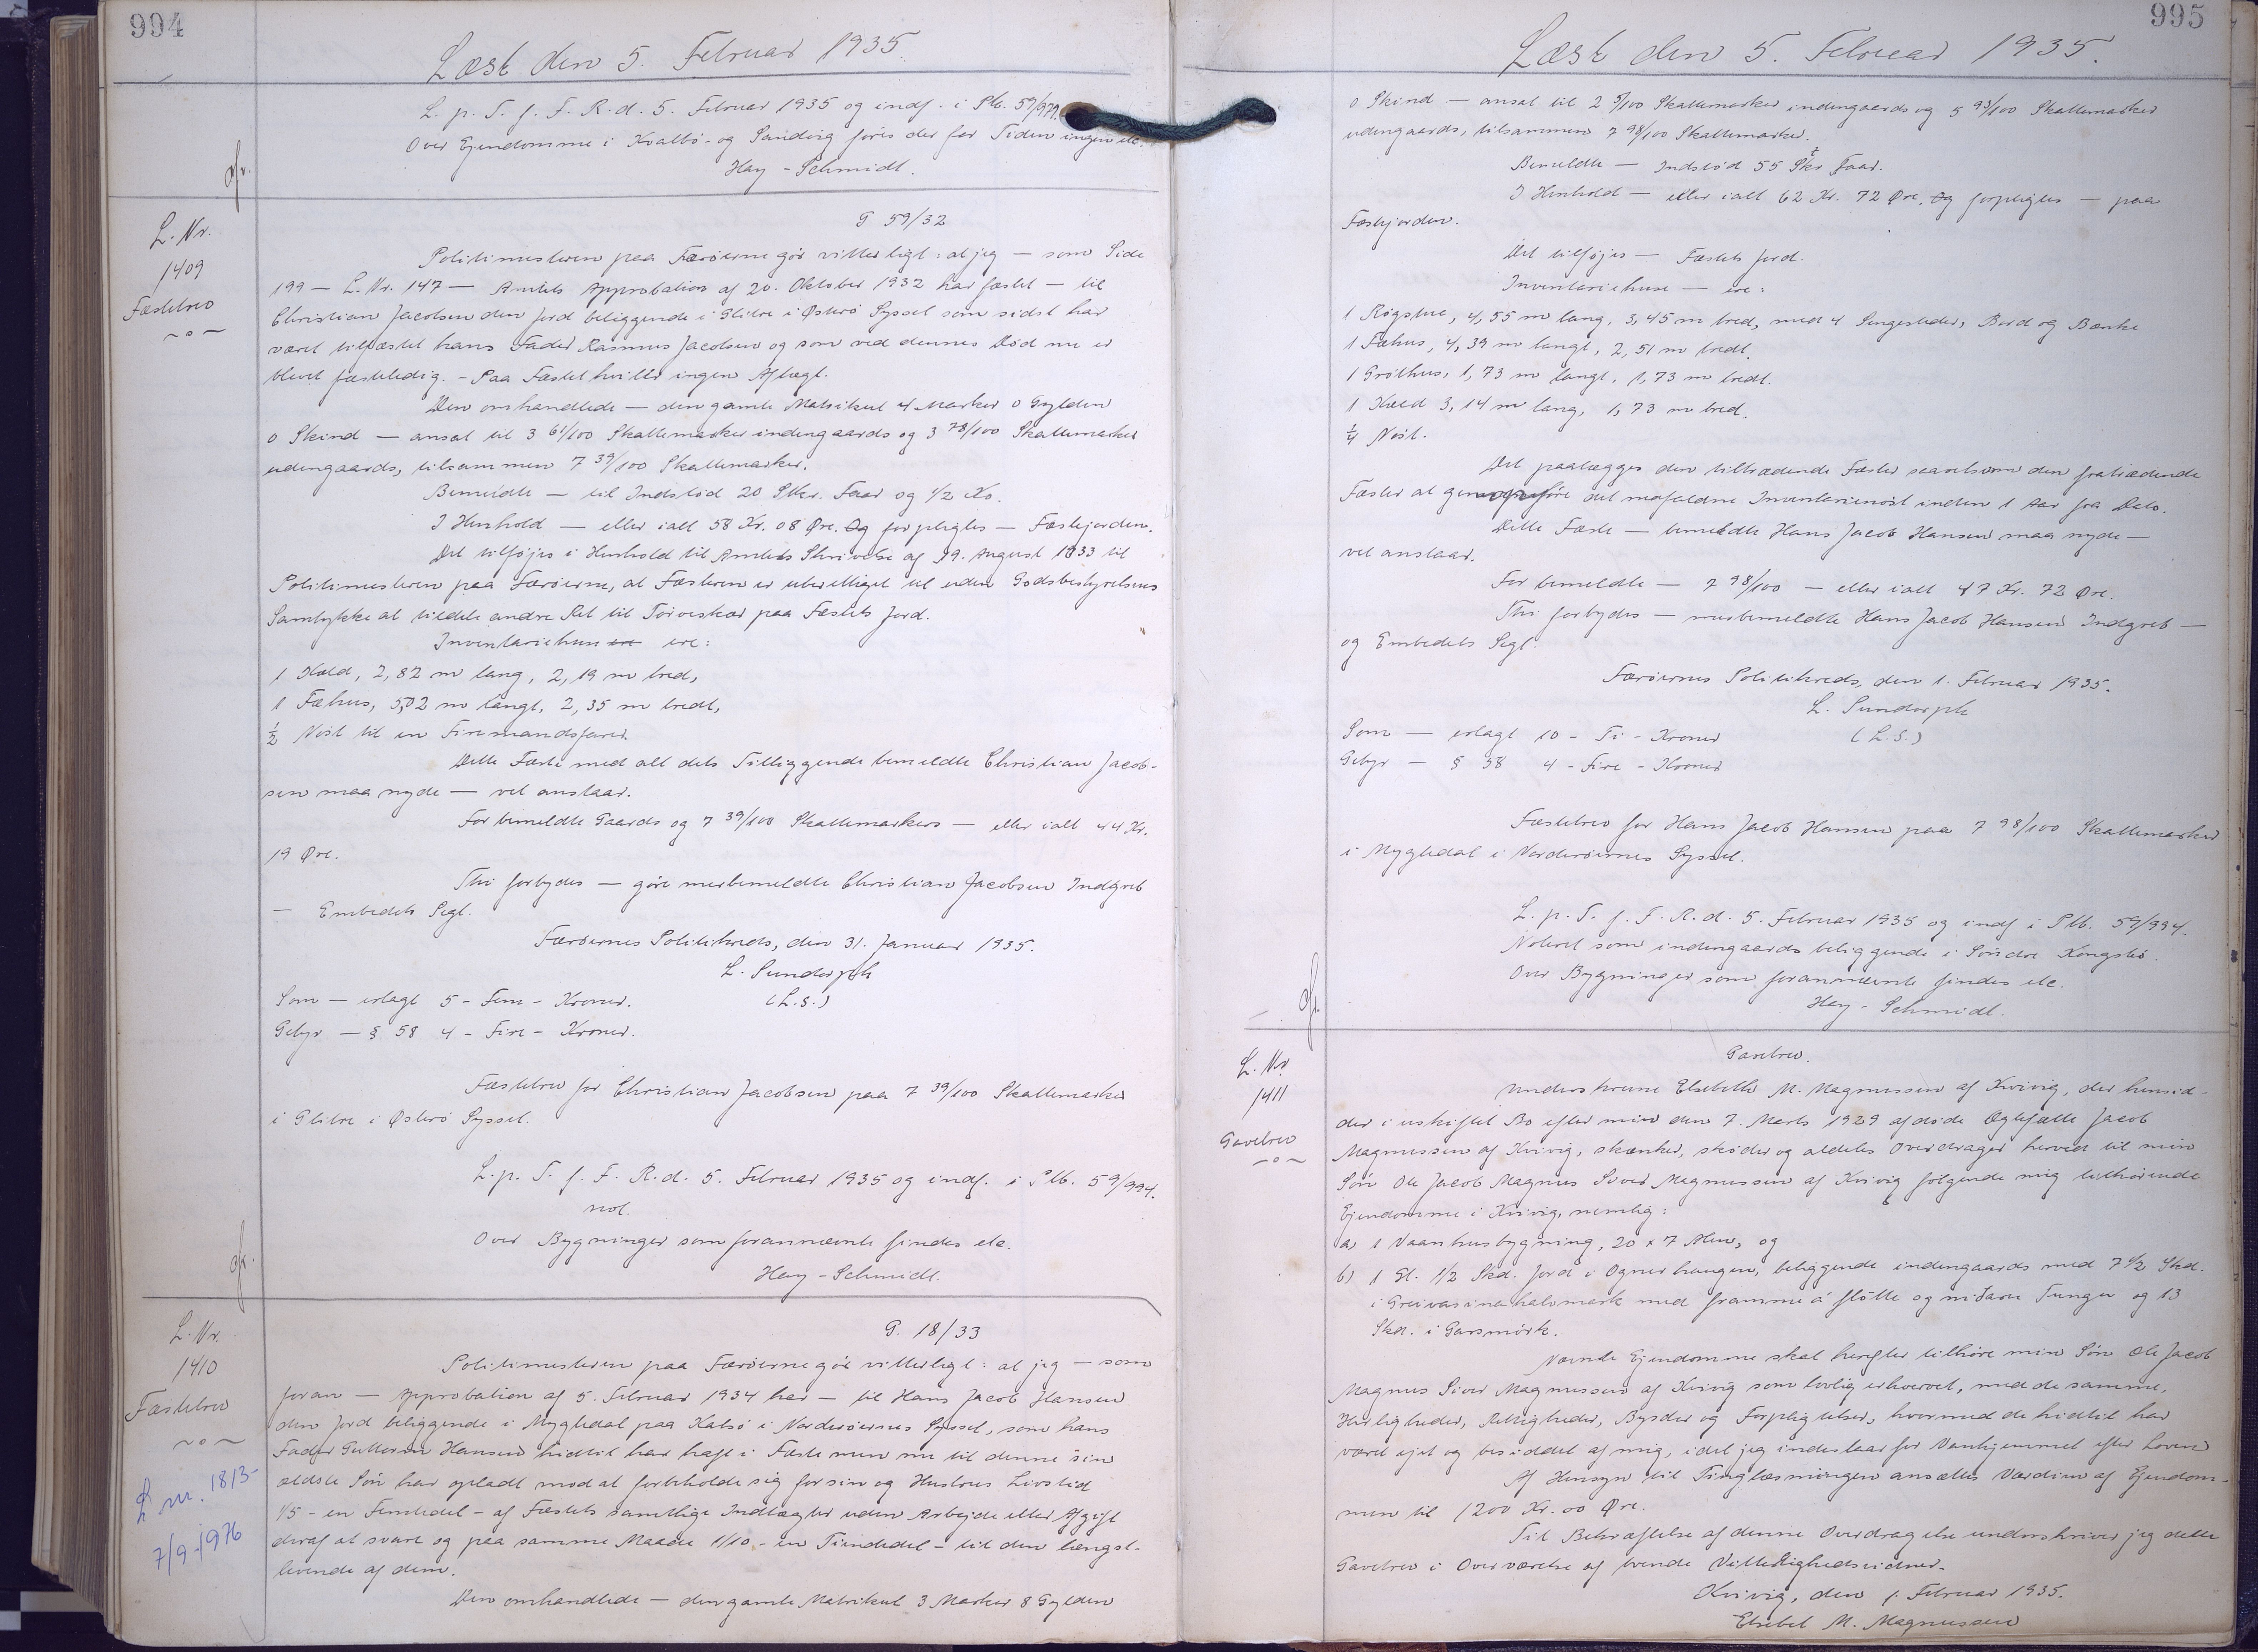 994
Læst den 5. Februar 1935.
L. p. T. f. F. R. d. 5. Februar 1935 og indf. i Ptb. 59/979.
Over Ejendomme i Kvalbö- og Sandvig föres der for Tiden ingen etc.
Hay-Schmidt.
L. Nr.
1409
Fæstebrev
G 59/32
Politimesteren paa Færöerne gör vitterligt: at jeg — som Side
199 — L. Nr. 147 — Amtets Approbation af 20. Oktober 1932 har fæstet — til
Christian Jacobsen den Jord beliggende i Glibre i Österö Syssel som sidst har
været tilfæstet hans Fader Rasmus Jacobsen og som ved dennes Död nu er
blevet fæsteledig. - Paa Fæstet hviler ingen Aftægt.
Den omhandlede — den gamle Matrikul 4 Marker 0 Gylden
0 Skind — ansat til 3 61/100 Skattemarker indengaards og 3 78/100 Skattemarker
udengaards, tilsammen 7 39/100 Skattemarker.
Bemeldte — til Indstöd 20 Stkr. Faar og 1/2 Ko.
I Henhold — eller ialt 58 Kr. 08 Øre. Og forpligtes — Fæstejorden.
Det tilföjes i Henhold til Amtets Skrivelse af 19. August 1933 til
Politimesteren paa Færöerne, at Fæsteren er uberettiget til uden Godsbestyrelsens
Samtykke at tildele andre Ret til Törveskær paa Fæstets Jord.
Inventariehuse ere:
1 Hæld, 2,82 m lang, 2,19 m bred,
1 Fæhus, 5,02 m langt, 2,35 m bredt,
1/2 Nöst til en Firemandsfarer.
Dette Fæste med alt dets Tilliggende bemeldte Christian Jacob-
sen maa nyde — vel anstaar.
For bemeldte Gaards og 7 39/100 Skattemarkers — eller ialt 44 Kr.
19 Øre.
Thi forbydes — göre merbemeldte Christian Jacobsen Indgreb
— Embedets Segl.
Færöernes Politikreds, den 31. Januar 1935.
L. Sundorph
Som — erlagt 5 - Fem - Kroner. (L.S.)
Gebyr — § 58 4 - Fire - Kroner.
Fæstebrev for Christian Jacobsen paa 7 39/100 Skattemarker
i Glibre i Österö Syssel.
L. p. T. f. F. R. d. 5. Februar 1935 og indf. i Ptb. 59/994.
not.
Over Bygninger som forannævnte findes etc.
Hay-Schmidt.
L. Nr.
1410
Fæstebrev
L nr. 1813-
7/9-1976
G. 18/33
Politimesteren paa Færöerne gör vitterligt: at jeg — som
foran — Approbation af 5. Februar 1934 har — til Hans Jacob Hansen
den Jord beliggende i Mygledal paa Kalsö i Norderöernes Syssel, som hans
Fader Guttorm Hansen hidtil har haft i Fæste men nu til denne sin
ældste Sön har opladt mod at forbeholde sig for sin og Hustrus Livstid
1/5 - en Femtedel - af Fæstets samtlige Indtægter uden Arbejde eller Afgift
deraf at svare og paa samme Maade 1/10 - en Tiendedel - til den længst-
levende af dem.
Den omhandlede — den gamle Matrikul 3 Marker 8 Gylden
995
Læst den 5. Februar 1935.
0 Skind — ansat til 2 5/100 Skattemarker indengaards og 5 93/100 Skattemarker
udengaards, tilsammen 7 98/100 Skattemarker.
Bemeldte — Indstöd 55 Stkr Faar.
I Henhold — eller ialt 62 Kr. 72 Øre. Og forpligtes — paa
Fæstejorden.
Det tilföjes — Fæstets Jord.
Inventariehuse — ere:
1 Rögstue, 4,55 m lang, 3,45 m bred, med 4 Sengesteder, Bord og Bænke
1 Fæhus, 4,39 m langt, 2,51 m bredt.
1 Gröthus, 1,73 m langt, 1,73 m bredt.
1 Hæld 3,14 m lang, 1,73 m bred.
1/4 Nöst.
Det paalægges den tiltrædende Fæster saavelsom den fratrædende
Fæster at genopföre det nedfaldne Inventarienöst inden 1 Aar fra Dato.
Dette Fæste — bemeldte Hans Jacob Hansen maa nyde —
vel anstaar.
For bemeldte — 7 98/100 — eller ialt 47 Kr. 72 Øre.
Thi forbydes — merbemeldte Hans Jacob Hansen Indgreb —
og Embedets Segl.
Færöernes Politikreds, den 1. Februar 1935.
L. Sundorph
Som — erlagt 10 - Ti - Kroner (L.S.)
Gebyr — § 58 4 - Fire - Kroner
Fæstebrev for Hans Jacob Hansen paa 7 98/100 Skattemarker
i Mygledal i Norderöernes Syssel.
L. p. T. f. F. R. d. 5. Februar 1935 og indf i Ptb. 59/994.
Noteret som indengaards beliggende i Söndre Kongsbö.
Over Bygninger som forannævnte findes etc.
Hay-Schmidt.
L. Nr.
1411
Gavebrev
Gavebrev.
Underskrevne Elsebeth M. Magnussen af Kvivig, der hensid-
der i uskiftet Bo efter min den 7. Marts 1929 afdöde Ægtefælle Jacob
Magnussen af Kvivig, skænker, sköder og aldeles overdrager herved til min
Sön Ole Jacob Magnus Siver Magnussen af Kvivig fölgende mig tilhörende
Ejendomme i Kvivig, nemlig:
a) 1 Vaanhusbygning, 20 x 7 Alen, og
b) 1 Gl. 1/2 Skd. Jord i Ognerhaugen, beliggende indengaards med 7 1/2 Skd.
i Greivasina halvmark med framme á flötte og niðare Tunger og 13
Skd. i Garsmörk.
Nævnte Ejendomme skal herefter tilhöre min Sön Ole Jacob
Magnus Siver Magnussen af Kvivig som lovlig erhvervet, med de samme
Herligheder, Rettigheder, Byrder og Forpligtelser, hvormed de hidtil har
været ejet og besiddet af mig, idet jeg indestaar for Vanhjemmel efter Loven
Af Hensyn til Tinglæsningen ansættes Værdien af Ejendom-
men til 1200 Kr. 00 Øre.
Til Bekræftelse af denne Overdragelse underskriver jeg dette
Gavebrev i Overværelse af tvende Vitterlighedsvidner.
Kvivig, den 1. Februar 1935.
Elsebet M. Magnussen